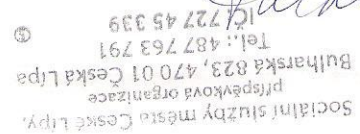 Sociální služby města České Lípy,
příspěvková organizace
Bulharská 823, 470 01 Česká Lípa
Tel.: 487 763 791
IČ 727 45 339